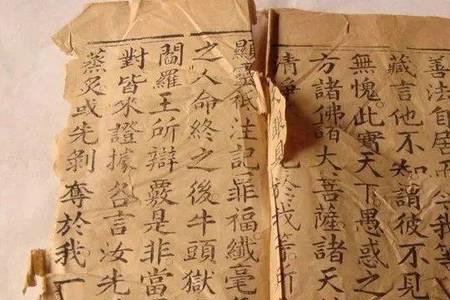 善法自居
藏言他不知謂彼不見
無愧此實天下愚惑之
方諸佛諸大菩薩諸天
清淨 見於我等所
顯靈祇注記罪福纖毫
之人命終之後牛頭獄
閻羅王所辯覈是非當
對皆來證據各言汝先
蒸炙或先剝奪於我一